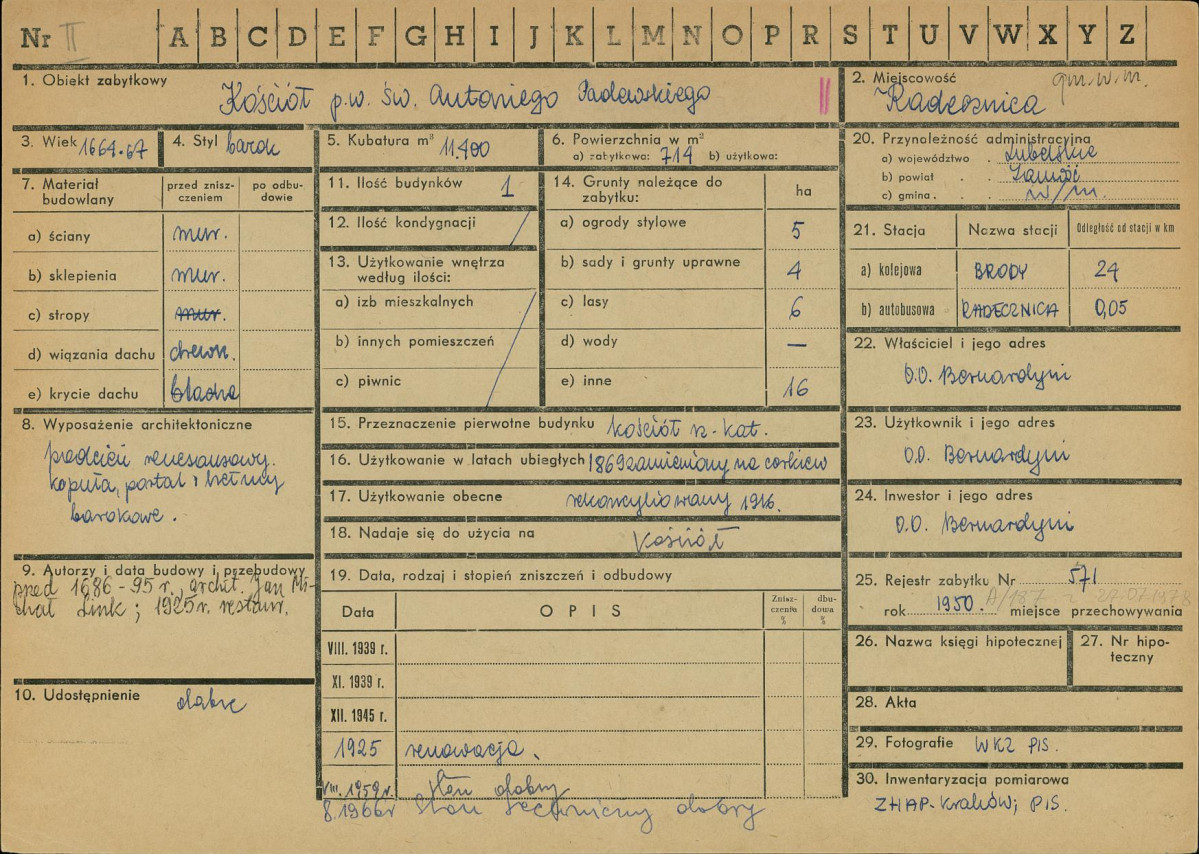 Nr II A B C D E F G H I J K L M N O P R S T U V W X Y Z
1. Obiekt zabytkowy
Kościół p.w. św. Antoniego Padewskiego II
2. Miejscowość gm.w.m.
Radecznica
3. Wiek 1664-67
4. Styl barok
5. Kubatura m³ 11.400
6. Powierzchnia w m²
a) zabytkowa: 714 b) użytkowa:
7. Materiał budowlany
przed zniszczeniem
po odbudowie
a) ściany mur.
b) sklepienia mur.
c) stropy mur.
d) wiązania dachu drewn.
e) krycie dachu blacha
8. Wyposażenie architektoniczne
renesansowy.
kopuła, portal i hełmy
barokowe.
9. Autorzy i data budowy i przebudowy
przed 1686-95 r., archit. Jan Mi-
chał Link; 1925 r. restaur.
10. Udostępnienie dobre
11. Ilość budynków 1
12. Ilość kondygnacji
13. Użytkowanie wnętrza
według ilości:
a) izb mieszkalnych
b) innych pomieszczeń
c) piwnic
14. Grunty należące do
zabytku: ha
a) ogrody stylowe 5
b) sady i grunty uprawne 4
c) lasy 6
d) wody —
e) inne 16
15. Przeznaczenie pierwotne budynku kościół rz.-kat.
16. Użytkowanie w latach ubiegłych 1869 zamieniony na cerkiew
17. Użytkowanie obecne rekoncyliowany 1916.
18. Nadaje się do użycia na Kościół
19. Data, rodzaj i stopień zniszczeń i odbudowy
Data OPIS Zniszczenia % dbudowa %
VIII. 1939 r.
XI. 1939 r.
XII. 1945 r.
1925 renowacja.
VIII. 1959 r. stan dobry
8.1966r Stan techniczny dobry
20. Przynależność administracyjna
a) województwo . Lubelskie
b) powiat . . Zamość
c) gmina . . . w/m
21. Stacja Nazwa stacji Odległość od stacji w km
a) kolejowa BRODY 24
b) autobusowa RADECZNICA 0,05
22. Właściciel i jego adres
O.O. Bernardyni
23. Użytkownik i jego adres
O.O. Bernardyni
24. Inwestor i jego adres
O.O. Bernardyni
25. Rejestr zabytku Nr 571
A/187 z
rok 1950. miejsce przechowywania
26. Nazwa księgi hipotecznej
27. Nr hipo-
teczny
28. Akta
29. Fotografie WKZ PIS.
30. Inwentaryzacja pomiarowa
ZHAP-Kraków; PIS.